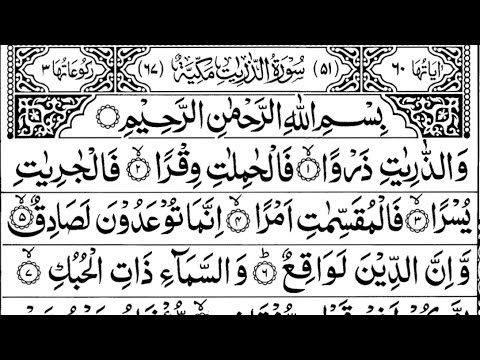 اٰیاتُھا ٦٠ (٥١) سُوْرَةُ الذّٰرِیٰتِ مَكِّیَّةٌ (٦٧) رُكُوْعَاتُھَا ٣
بِسْمِ اللّٰهِ الرَّحْمٰنِ الرَّحِیْمِ
وَالذّٰرِیٰتِ ذَرْوًا ۙ﴿١﴾ فَالْحٰمِلٰتِ وِقْرًا ۙ﴿٢﴾ فَالْجٰرِیٰتِ
یُسْرًا ۙ﴿٣﴾ فَالْمُقَسِّمٰتِ اَمْرًا ۙ﴿٤﴾ اِنَّمَا تُوْعَدُوْنَ لَصَادِقٌ ۙ﴿٥﴾
وَّ اِنَّ الدِّیْنَ لَوَاقِعٌ ؕ﴿٦﴾ وَ السَّمَآءِ ذَاتِ الْحُبُكِ ۙ﴿٧﴾